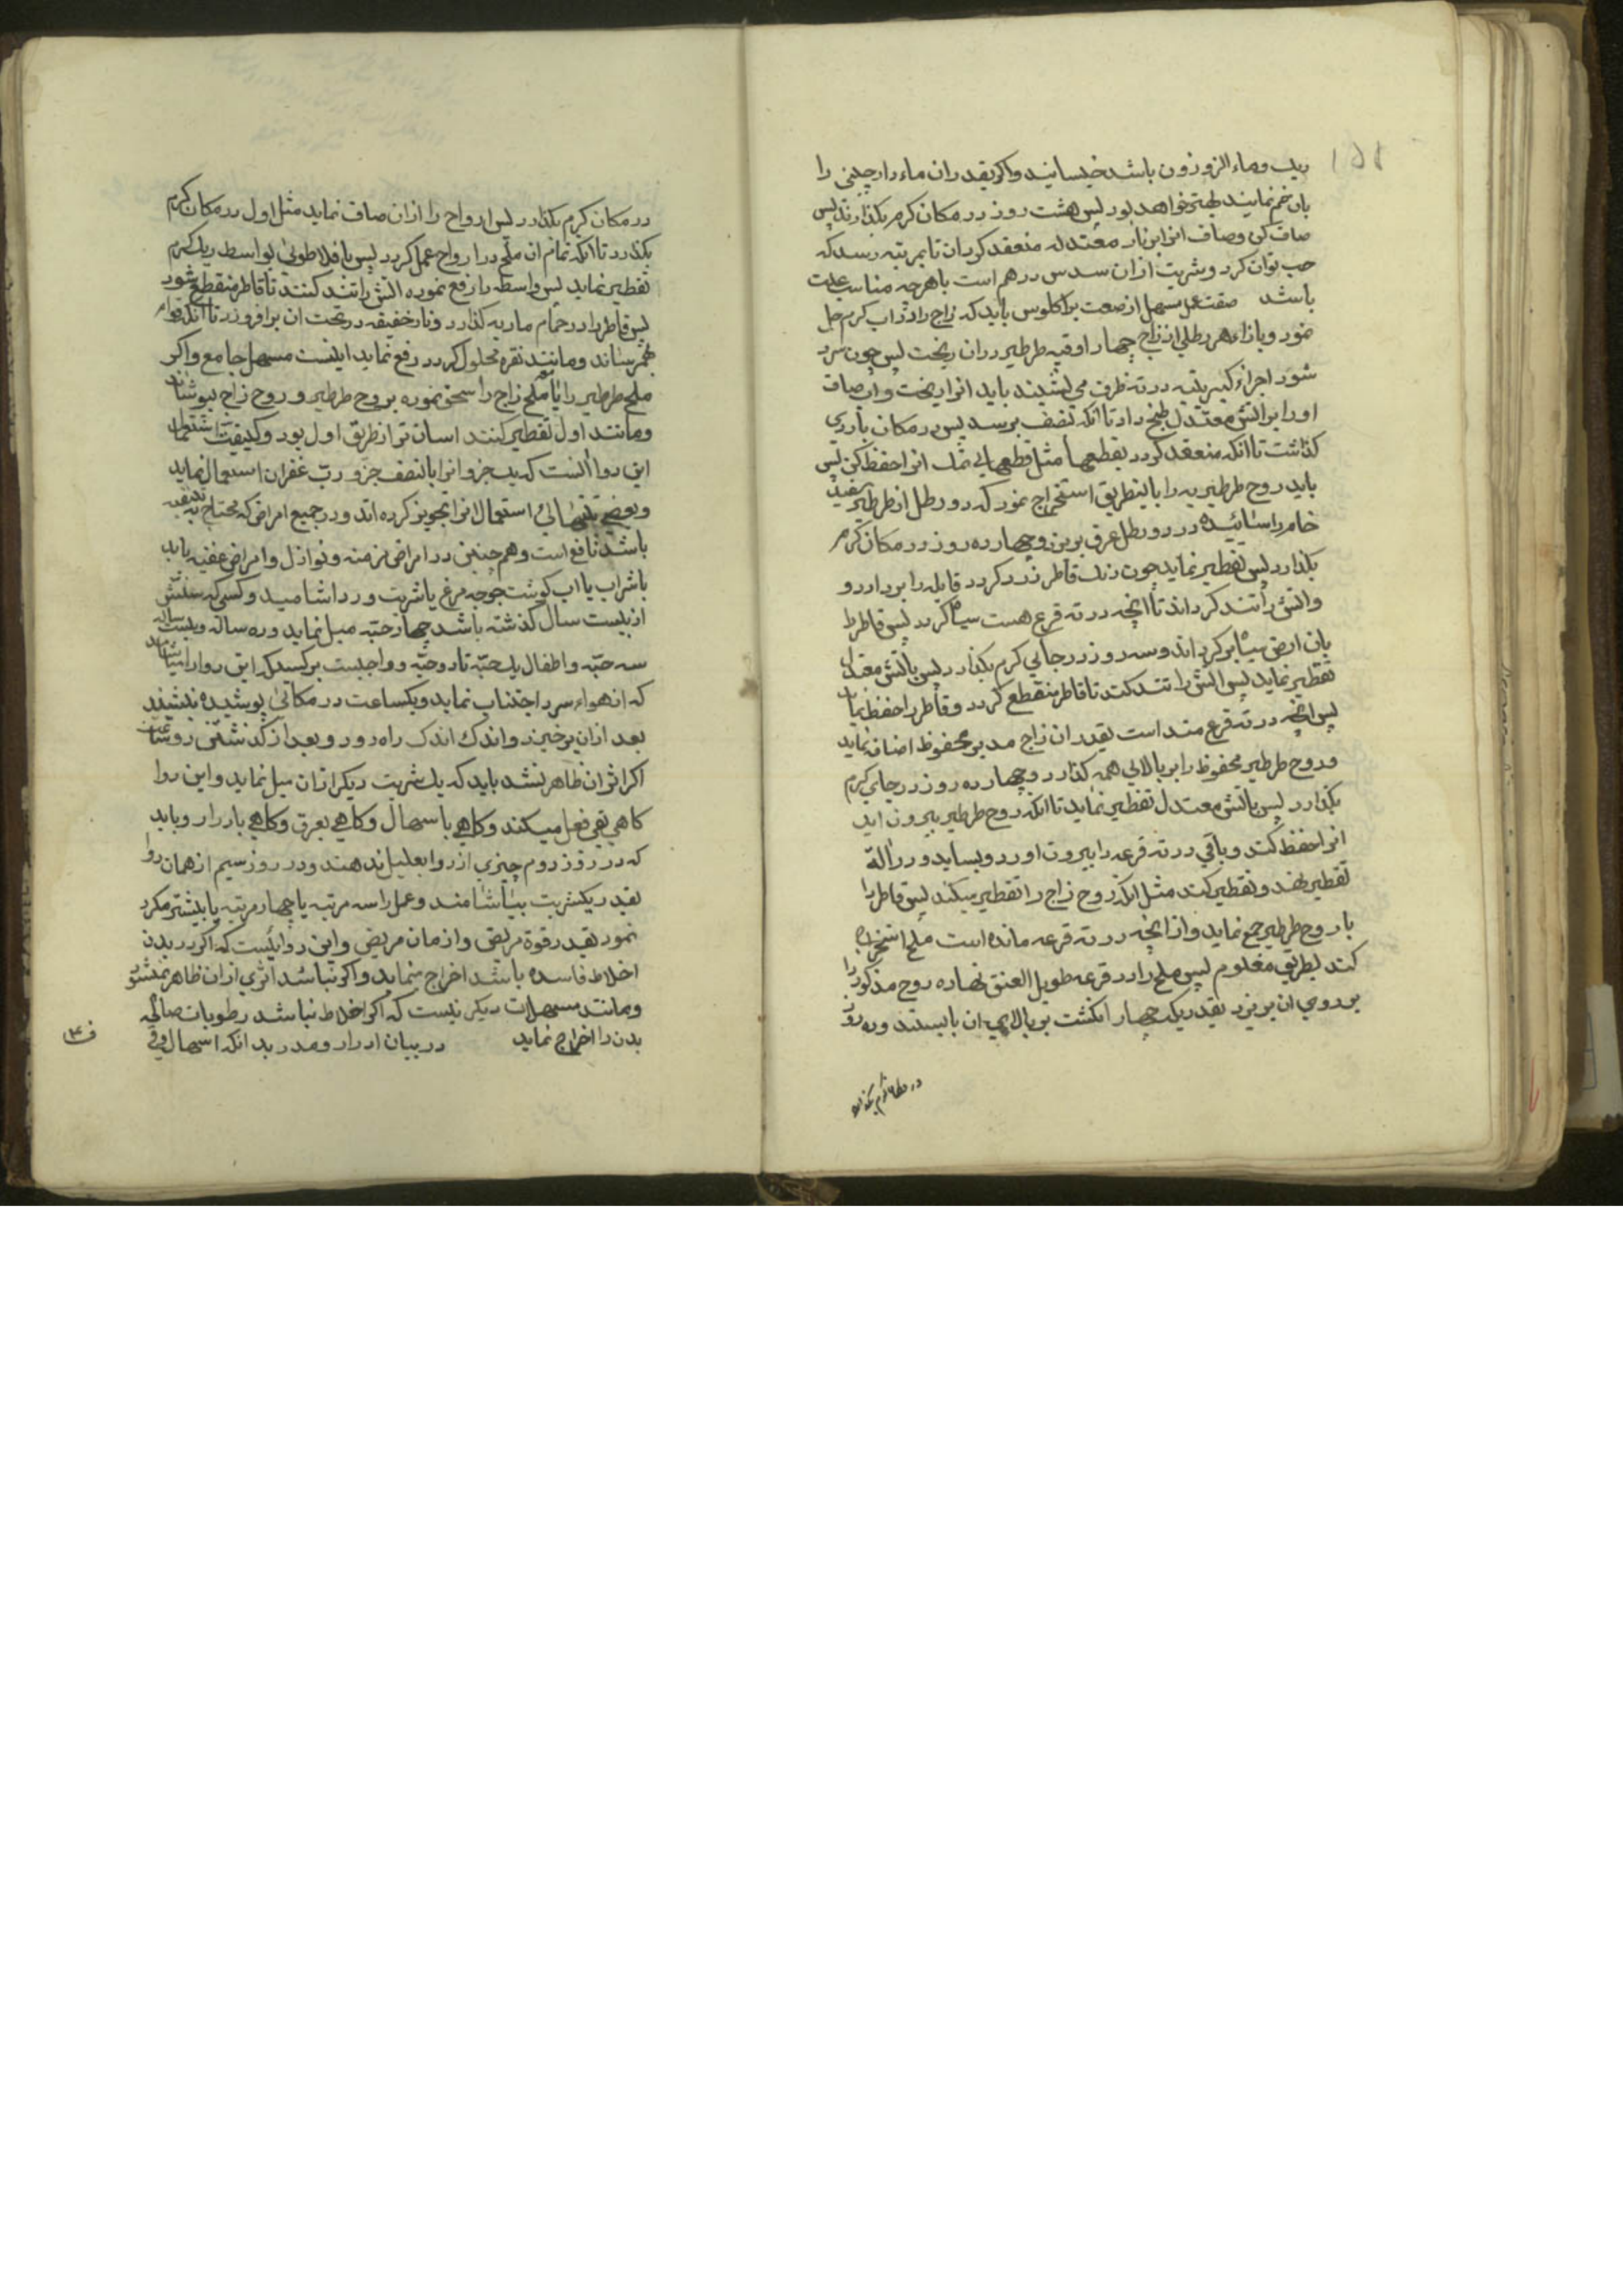 ریب وماء الزوزون باشد خیسانید واکر بقدر ان ماء دارچینی را
بان خم نمایند بهتر خواهد بود پس هشت روز در مکان کرم بکذارند پس
صاف کن وصاف انرا بنار معتدله منعقد کردان تا بمرتبه رسد که
حب توان کرد وشربت ازان سدس درهم است با هرچه مناسب علت
باشد صفت عمل مسهل از صعت براکلوس باید که زاج را در اب کرم حل
نمود وبازاء هر رطلی از زاج چهار اوقیه طرطیر دران ریخت پس چون سرد
شود اجزاء کبریتیه در ته ظرف می نشیند باید انرا ریخت واب صاف
اورا بر اتش معتدل طبخ داد تا انکه بنصف برسد پس در مکان باردی
کذاشت تا انکه منعقد کردد بقطعها مثل قطعهای نمک انرا حفظ کن پس
باید روح طرطیریه را باینطریق استخراج نمود که دو رطل از طرطیر سفید
خام را سائیده در دو رطل عرق بریزد وچهارده روز در مکان کرم
بکذارد پس تقطیر نماید چون رنک قاطر زرد کردد قابله را بردارد و
واتش را تند کرداند تا انچه در ته قرع هست سیاه کردد پس قاطر را
بان ارض سیاه بر کرداند وسه روز در جائی کرم بکذارد پس باتش معتدل
تقطیر نماید پس اتش را تند کند تا قاطر منقطع کردد وقاطر را حفظ نماید
پس انچه در ته قرع منداست بقدر ان زاج مدبر محفوظ اضافه نماید
وروح طرطیر محفوظ را بر بالای همه کذارد وچهارده روز در جای کرم
بکذارد پس باتش معتدل تقطیر نماید تا انکه روح طرطیر بیرون اید
انرا حفظ کند وباقی در ته قرعه را بیرون اورد وبساید ودر الة
تقطیر نهد وتقطیر کند مثل انکه روح زاج را تقطیر میکند پس قاطر را
با روح طرطیر جمع نماید واز انچه در ته قرعه مانده است ملح استخراج
کند بطریق معلوم پس ملح را در قرعه طویل العنق نهاده روح مذکور را
بر روی ان بریزد بقدریکه چهار انکشت بر بالای ان بایستد وده روز
در مکان کرم بکذارد
در مکان کرم بکذارد پس ارواح را ازان صاف نماید مثل اول در مکان کرم
بکذارد تا انکه تمام ان ملح در ارواح عمل کردد پس با فلاطونی بواسطه ریک کرم
تقطیر نماید پس واسطه را رفع نموده اتش را تند کنند تا قاطر منقطع شود
پس قاطر را در حمام ماریه کذارد ونار خفیفه در تحت ان برافروزد تا انکه قوام
بهم رساند ومانند نقره محلول کردد رفع نماید اینست مسهل جامع واکر
ملح طرطیر را با ملح زاج را سحق نموده بروح طرطیر وروح زاج بپوشاند
ومانند اول تقطیر کنند اسان تر از طریق اول بود وکیفیت استعمال
این دوا انست که یک جزو انرا با نصف جزو رب غفران استعمال نماید
وبعضی بتنهائی استعمال انرا تجویز کرده اند ودر جمیع امراض که محتاج به تنقیه
باشد نافع است وهم چنین در امراض مزمنه ونوازل وامراض عفنیه باید
با شراب یا اب کوشت جوجه مرغ یا شربت ورد اشامید وکسی که سنش
از بیست سال کذشته باشد چهار حبّه میل نماید وده ساله وبیست ساله
سه حبّه واطفال یک حبّه تا دو حبّه وواجبست بر کسیکه این دوا را بیاشامد
که از هواء سرد اجتناب نماید ویکساعت در مکانی پوشیده بنشیند
بعد ازان برخیزد واندک اندک راه رود وبعد از کذشتن دو ساعت
اکر اثر ان ظاهر نشد باید که یک شربت دیکر ازان میل نماید واین دوا
کاهی بقی فعل میکند وکاهی باسهال وکاهی بعرق وکاهی بادرار وباید
که در روز دوم چیزی از دوا بعلیل ندهند ودر روز سیم از همان دوا
بقدر یکشربت بیاشامند وعمل را سه مرتبه یا چهار مرتبه یا بیشتر مکرر
نمود بقدر قوة مریض وازمان مریض واین دوائیست که اکر در بدن
اخلاط فاسده باشد اخراج مینماید واکر نباشد اثری ازان ظاهر نمیشود
ومانند مسهلات دیکر نیست که اکر اخلاط نباشد رطوبات صالحه
بدن را اخراج نماید در بیان ادرار ومدر بدانکه اسهال وقی